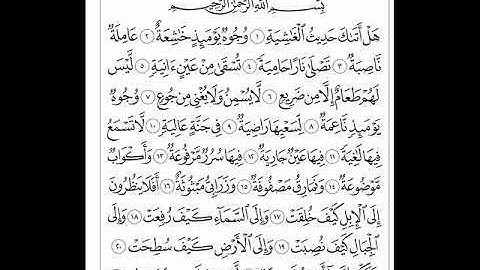 بِسْمِ اللَّهِ الرَّحْمَٰنِ الرَّحِيمِ
هَلْ أَتَىٰكَ حَدِيثُ الْغَٰشِيَةِ ١ وُجُوهٌ يَوْمَئِذٍ خَٰشِعَةٌ ٢ عَامِلَةٌ
نَّاصِبَةٌ ٣ تَصْلَىٰ نَارًا حَامِيَةً ٤ تُسْقَىٰ مِنْ عَيْنٍ ءَانِيَةٍ ٥ لَّيْسَ
لَهُمْ طَعَامٌ إِلَّا مِن ضَرِيعٍ ٦ لَّا يُسْمِنُ وَلَا يُغْنِي مِن جُوعٍ ٧ وُجُوهٌ
يَوْمَئِذٍ نَّاعِمَةٌ ٨ لِّسَعْيِهَا رَاضِيَةٌ ٩ فِي جَنَّةٍ عَالِيَةٍ ١٠ لَّا تَسْمَعُ
فِيهَا لَٰغِيَةً ١١ فِيهَا عَيْنٌ جَارِيَةٌ ١٢ فِيهَا سُرُرٌ مَّرْفُوعَةٌ ١٣ وَأَكْوَابٌ
مَّوْضُوعَةٌ ١٤ وَنَمَارِقُ مَصْفُوفَةٌ ١٥ وَزَرَابِيُّ مَبْثُوثَةٌ ١٦ أَفَلَا يَنظُرُونَ
إِلَى الْإِبِلِ كَيْفَ خُلِقَتْ ١٧ وَإِلَى السَّمَآءِ كَيْفَ رُفِعَتْ ١٨ وَإِلَى
الْجِبَالِ كَيْفَ نُصِبَتْ ١٩ وَإِلَى الْأَرْضِ كَيْفَ سُطِحَتْ ٢٠